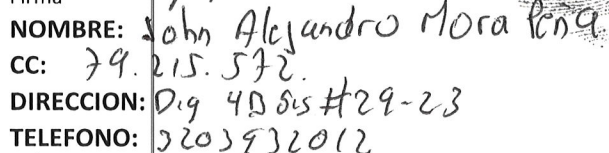 Firma
NOMBRE: John Alejandro Mora Peña
CC: 79.215.572.
DIRECCION: Dig 4D Sis #29-23
TELEFONO: 3203932012